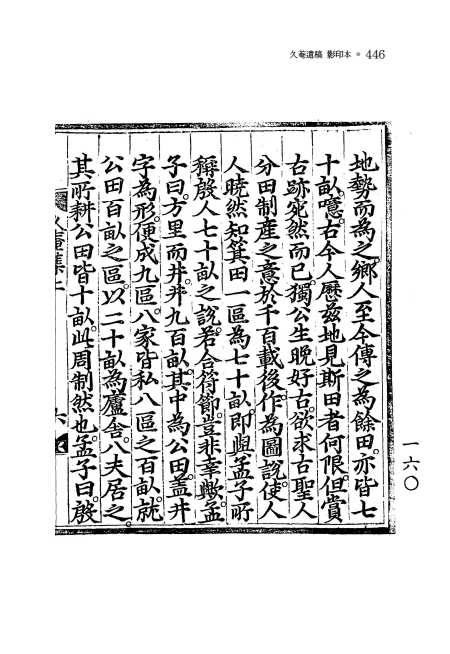 久菴遺稿 影印本 ● 446
地勢而為之鄉人至今傳之為餘田亦皆七
十畝噫古今人歷玆地見斯田者何限但賞
古跡宛然而已獨公生晚好古欲求古聖人
分田制產之意於千百載後作為圖說使人
人曉然知箕田一區為七十畝即與孟子所
稱殷人七十畝之說若合符節豈非幸歟孟
子曰方里而井井九百畝其中為公田盖井
字為形便成九區八家皆私八區之百畝就
公田百畝之區以二十畝為廬舍八夫居之
其所耕公田皆十畝此周制然也孟子曰殷
久菴集二
六
一六〇